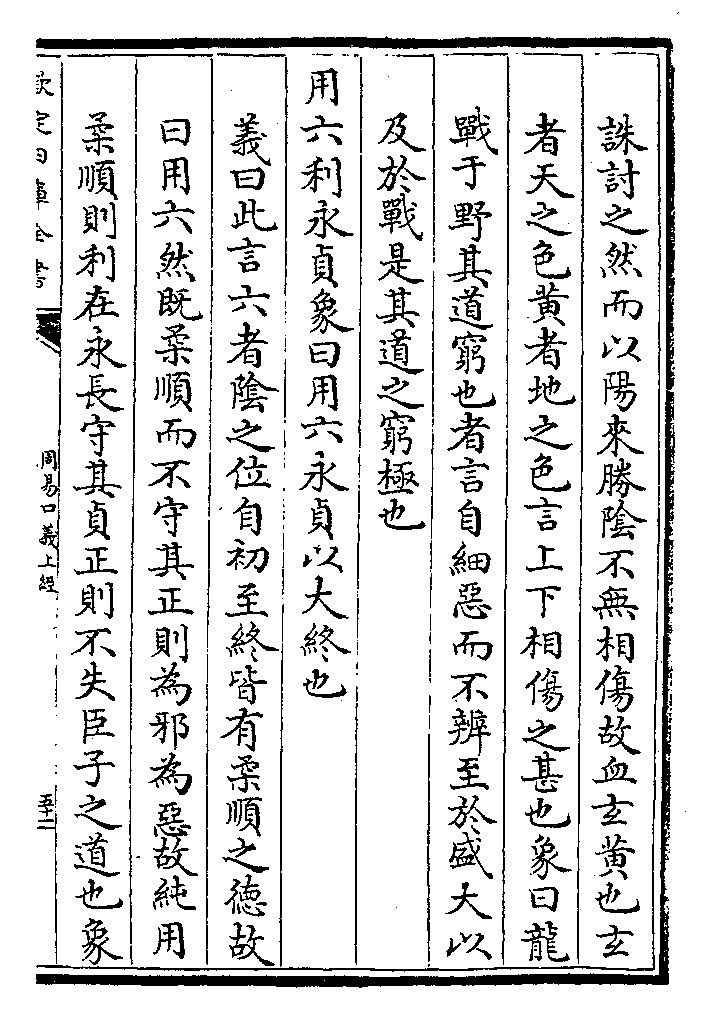 誅討之然而以陽來勝陰不無相傷故血玄黄也玄
者天之色黄者地之色言上下相傷之甚也象曰龍
戰于野其道窮也者言自細惡而不辨至於盛大以
及於戰是其道之窮極也
用六利永貞象曰用六永貞以大終也
義曰此言六者陰之位自初至終皆有柔順之德故
曰用六然既柔順而不守其正則為邪為惡故純用
柔順則利在永長守其貞正則不失臣子之道也象
欽定四庫全書
周易口義上經
五十二